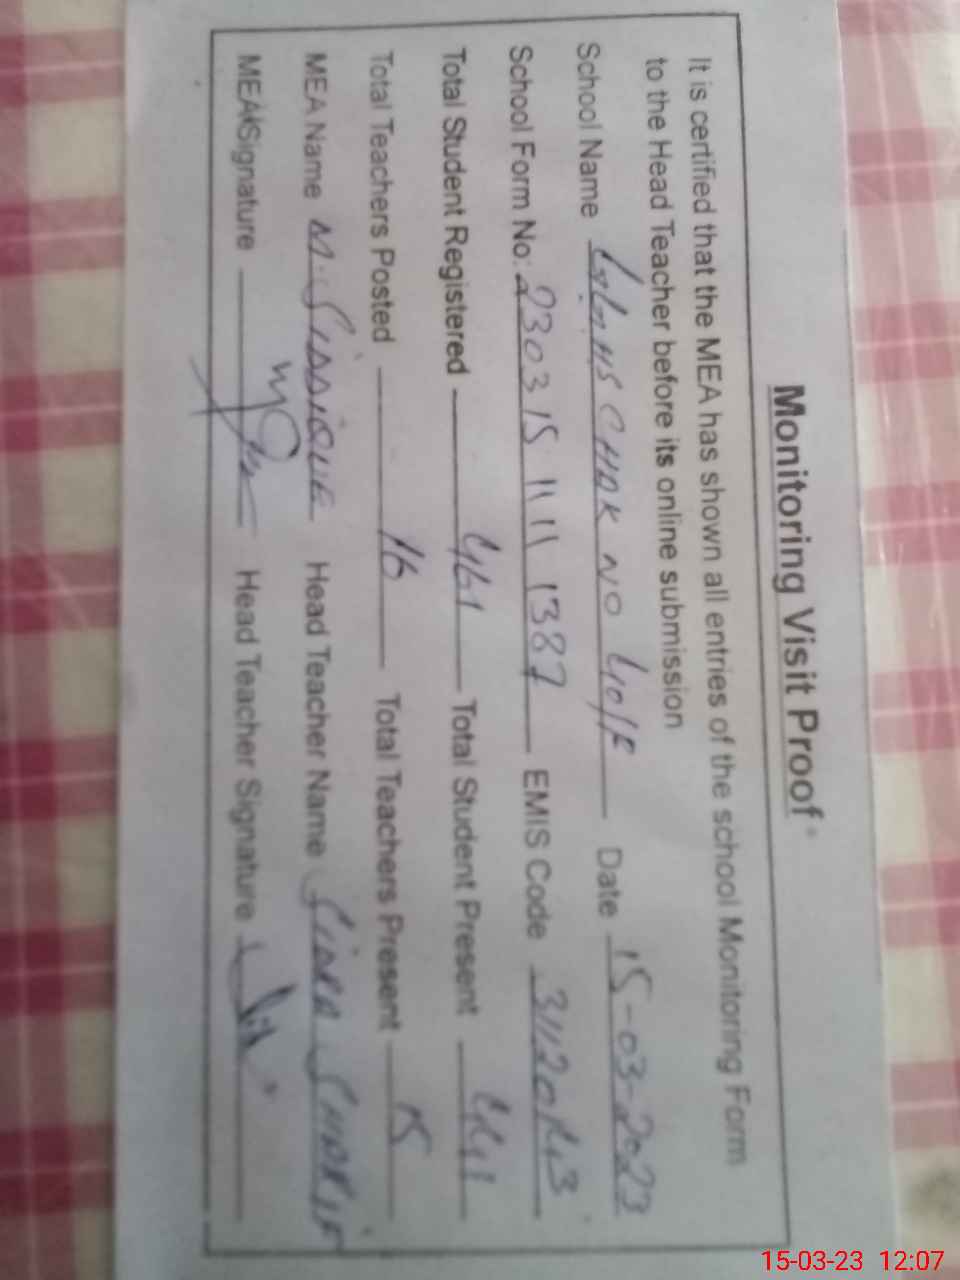 Monitoring Visit Proof
It is certified that the MEA has shown all entries of the school Monitoring Form
to the Head Teacher before its online submission
School Name GGHS CHAK NO Date 15-03-2023
School Form No: 230315 11 11 1387 EMIS Code
Total Student Registered 461 Total Student Present
Total Teachers Posted 16 Total Teachers Present 15
MEA Name M. SIDDIQUE Head Teacher Name
MEA Signature Head Teacher Signature
15-03-23 12:07